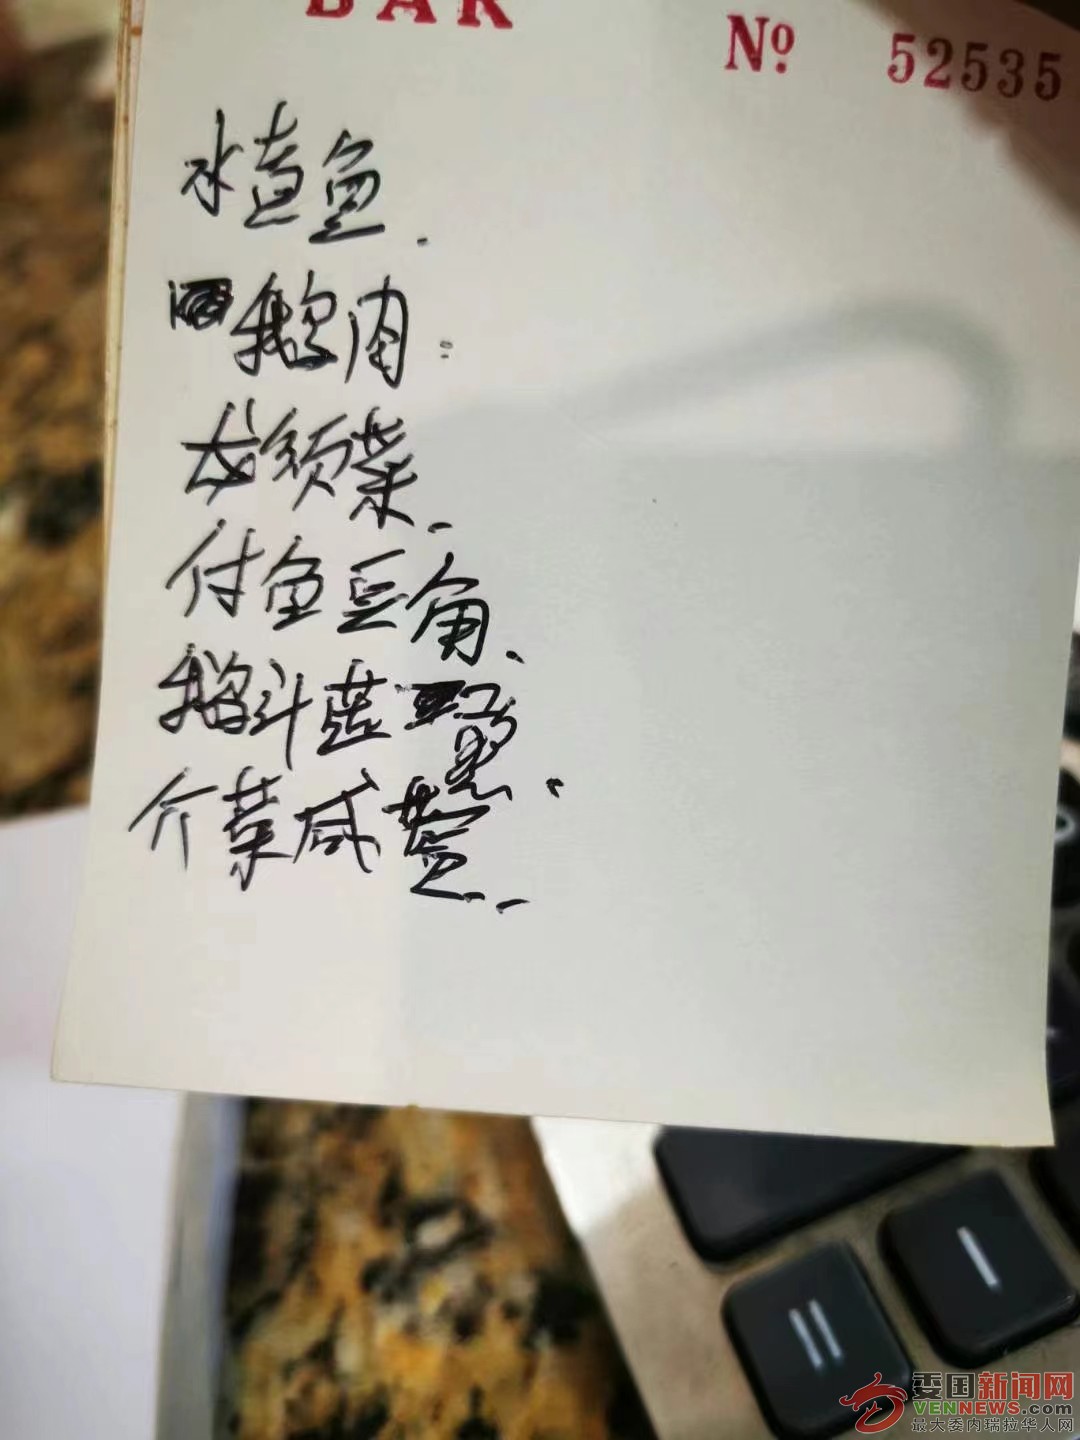 BAR
Nº 52535
水煮鱼.
鹅肉.
龙须菜.
付鱼豆角.
鹅斗蓝
介菜咸蛋.
委国新闻网
VENNEWS.com
最大委内瑞拉华人网